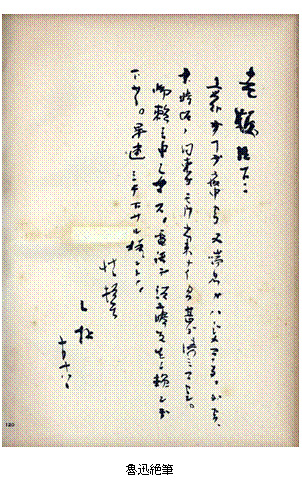 老版几下:
意外ナ事デ夜中カラ又喘息ガハジマッタ。ダカラ、
十時頃ノ約束ガモウ出来ナイカラ甚ダ済ミマセン。
御頼ミ申シマス。電話デ須藤先生ヲ頼ンデ
下サイ。早速ミテ下サル様ニト。
草々頓首
L 拝
十月十八日
120
魯迅絶筆